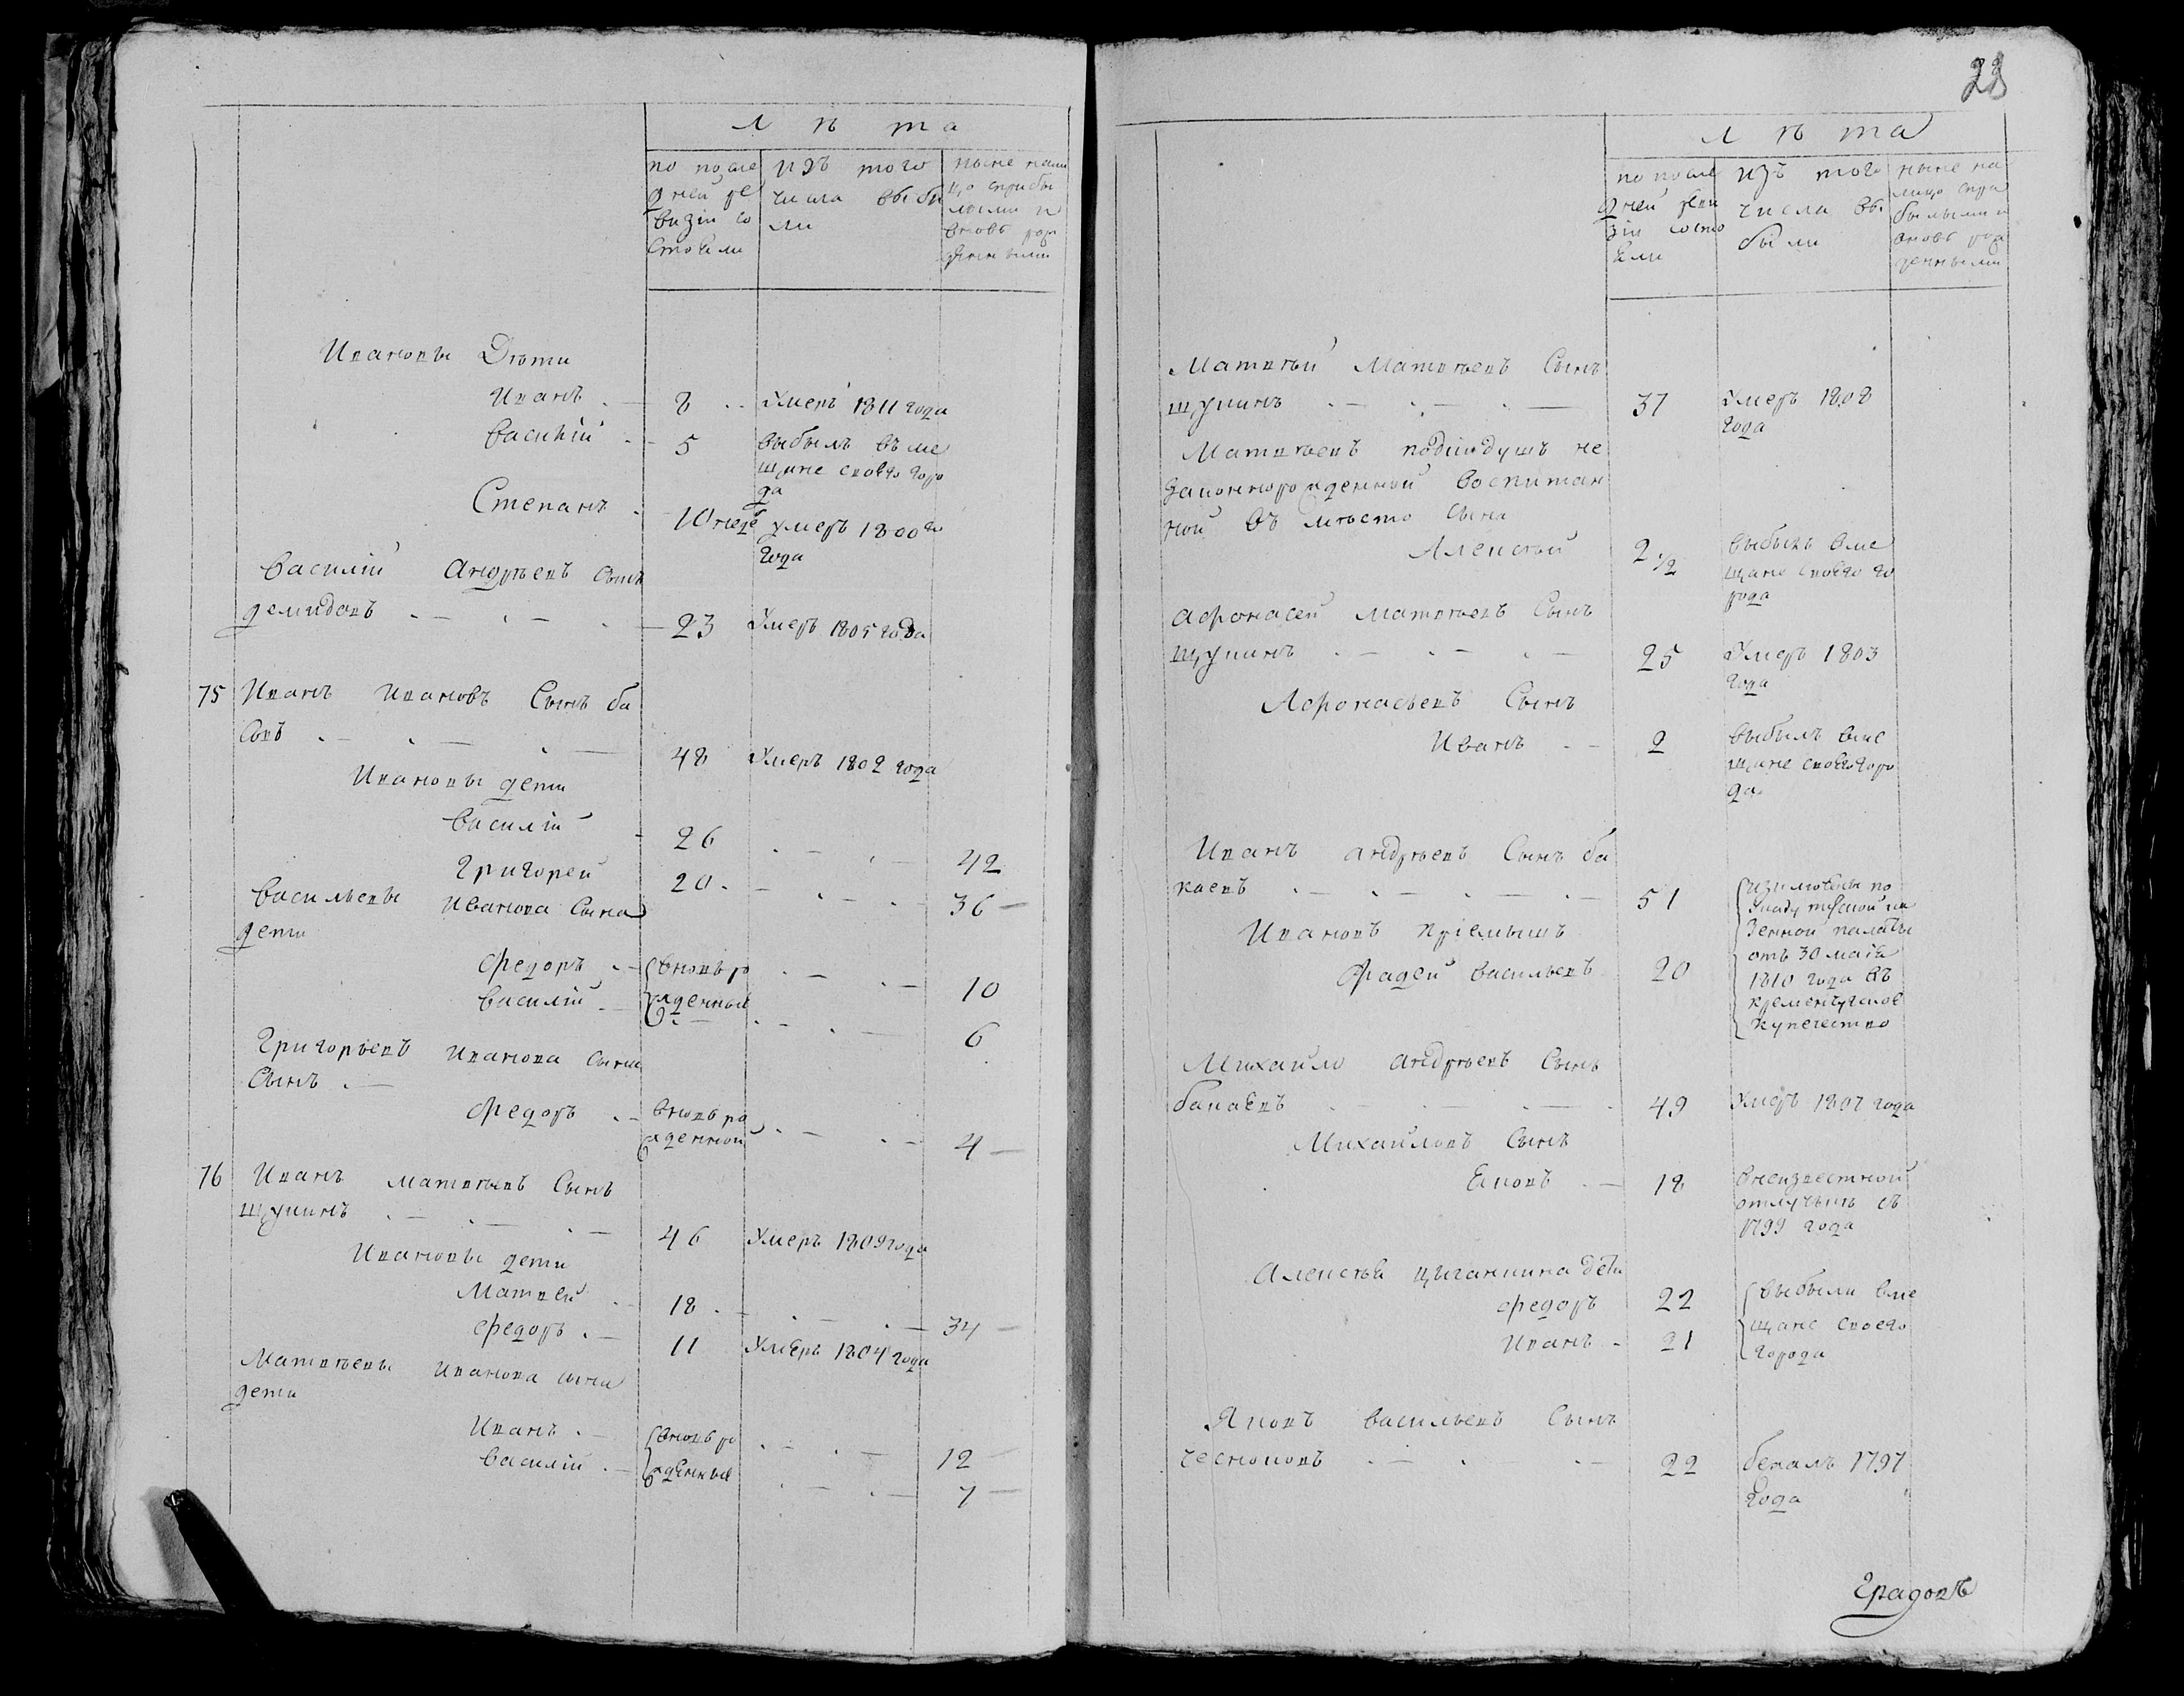 Лѣта
по после
дней ре
визіи со
стояли
изъ того
числа выбы
ли
ныне нали
цо с прибы
лыми и
вновь рож
денными
Ивановы Дѣти
Иванъ . — 8 . . Умеръ 1811 года
Василій . — 5 выбылъ въ ме
щане своего горо
да
Степанъ . 10 неде умеръ 1800го
года
Василій Андрѣевъ Сынъ
демидовъ . — . — . — 23 Умеръ 1805 года
75 Иванъ Ивановъ Сынъ ба
совъ . — . — . — 48 Умеръ 1802 года
Ивановы дети
Василій - 26 . — . — 42
Григорей 20 . — . — . 36 —
Васильевы Иванова Сына
дети
Федоръ . — вновь ро . — . — 10
Василій . — жденныя . — . — 6
Григорьевъ Иванова сына
Сынъ . —
Федоръ . — вновь ро
жденной . — . — 4 —
76 Иванъ Матвѣевъ Сынъ
щукинъ . — . — . — 46 Умеръ 1809 года
Ивановы дети
Матвей . — 18 . — . — . — 34 —
Федоръ . — 11 Умеръ 1804 года
Матвѣевы Иванова сына
дети
Иванъ . — вновь ро . — . — 12 —
Василій . — жденныя . — . — 7 —
28
Лѣта
по после
дней реви
зіи состо
яли
изъ того
числа вы
были
ныне на
лицо с при
былыми и
вновь рож
денными
Матвѣй Матвѣевъ Сынъ
щукинъ . — . — . — 37 Умеръ 1808
года
Матвѣевъ подкидушъ не
законнорожденной воспитан
ной въ мѣсто сына
Алексѣй 2 1/2 выбылъ вме
щане своего го
рода
Афонасей Матвѣевъ Сынъ
щукинъ . — . — . — 25 Умеръ 1803
года
Афонасьевъ Сынъ
Иванъ . — 2 выбылъ вме
щане своего горо
да
Иванъ Андрѣевъ Сынъ ба
каевъ . — . — . — . — 51
Ивановъ пріемышъ
Фадей Васильевъ 20
по
Указу ка
зенной палаты
отъ 30 маія
1810 года въ
кременчугское
купечество
Михайло Андрѣевъ Сынъ
бакаевъ . — . — . 49 Умеръ 1807 года
Михайловъ Сынъ
Яковъ . — 18 в неизвестной
отлучьки съ
1799 года
Алексѣя цыганкина дети
Федоръ 22 выбыли вме
Иванъ - 21 щане своего
города
Яковъ Васильевъ Сынъ
чесноковъ . — . — . — 22 бежалъ 1797
года
Градовъ